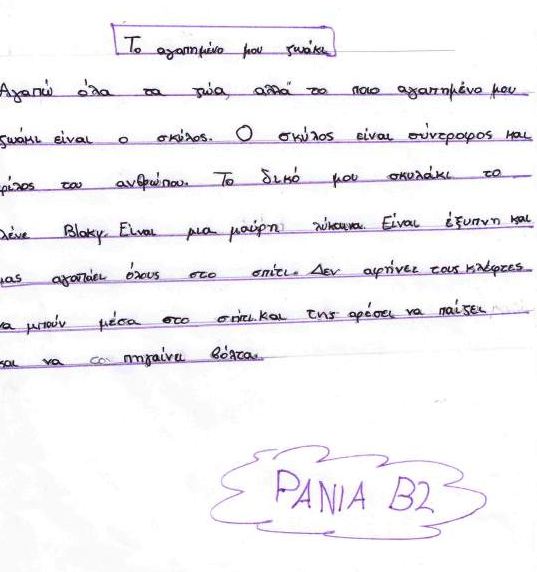 Το αγαπημένο μου ζωάκι
Αγαπώ όλα τα ζώα, αλλά το ποιο αγαπημένο μου
ζωάκι είναι ο σκύλος. Ο σκύλος είναι σύντροφος και
φίλος του ανθρώπου. Το δικό μου σκυλάκι το
λένε Blaky. Είναι μια μαύρη λύκαινα. Είναι έξυπνη και
μας αγαπάει όλους στο σπίτι. Δεν αφήνει τους κλέφτες
να μπούν μέσα στο σπίτι. και της αρέσει να παίζει
και να πηγαίνει βόλτα.
ΡΑΝΙΑ Β2